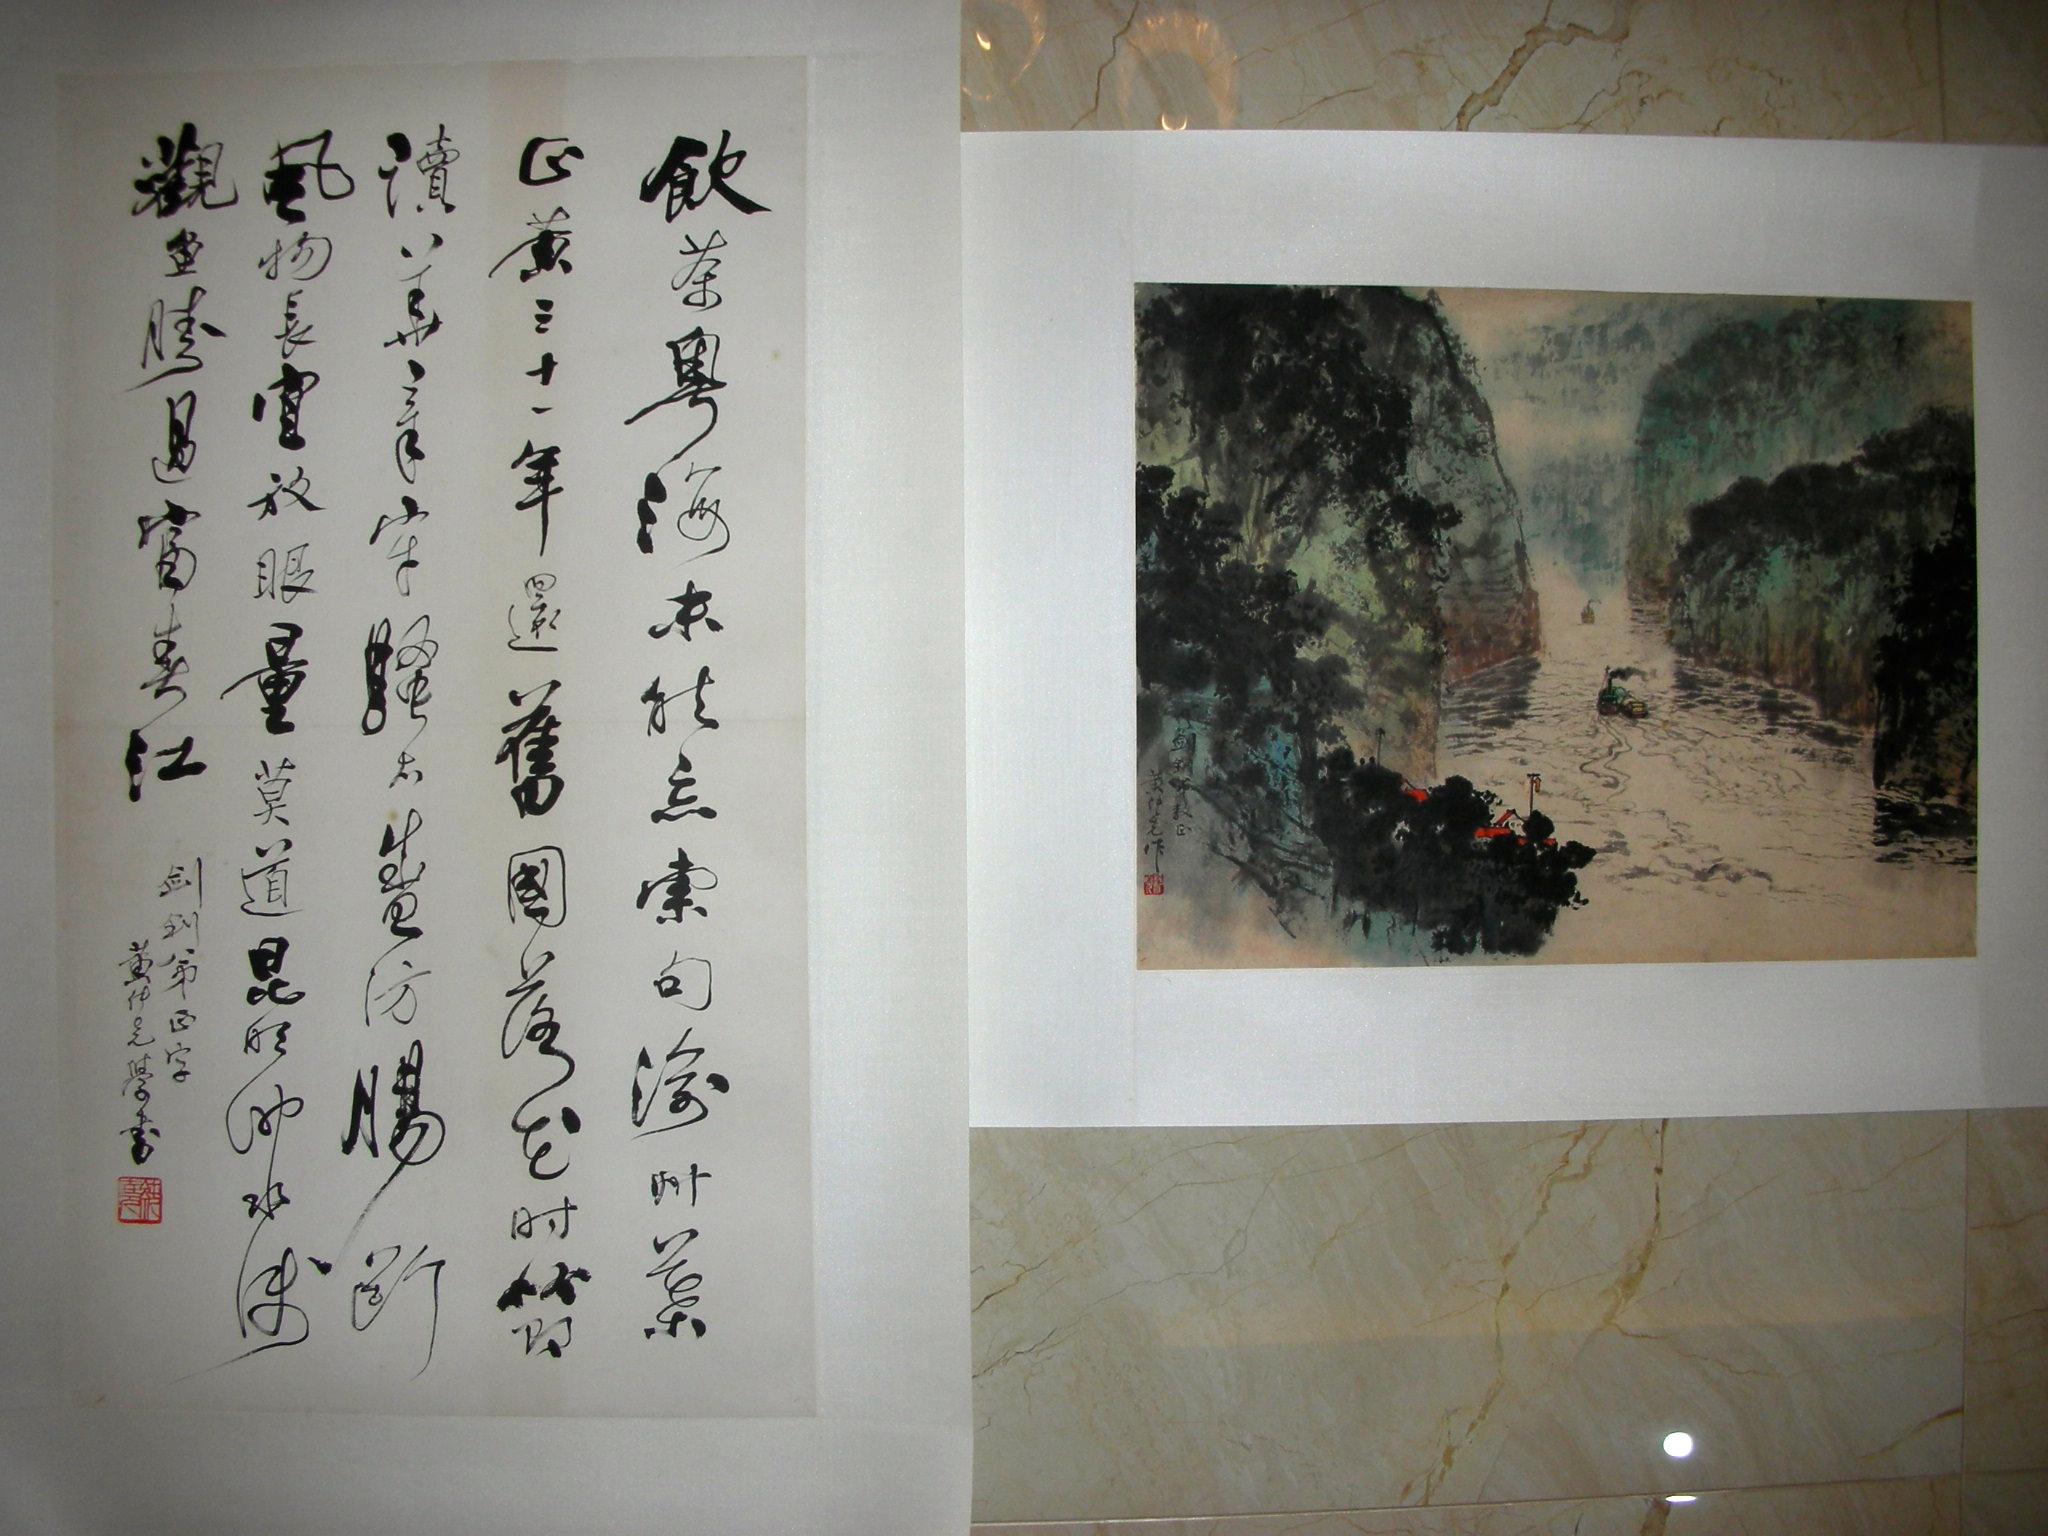 飲茶粵海未能忘索句渝州葉
正黃三十一年還舊國落花时節
讀華章牢騷太盛防腸斷
風物長宜放眼量莫道昆明池水淺
觀魚勝過富春江
剑釗弟正字
黄仲元學書
剑釗教正
黄仲元作